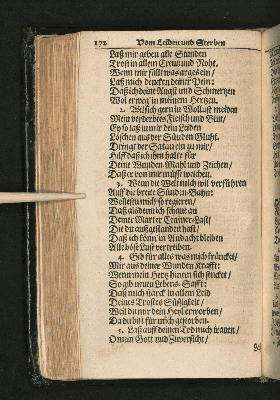 172 Vom Leiden und Sterben
Laß mir geben alle Stunden
Trost in allem Creutz und Noht.
Wenn mir fällt was arges ein/
Laß mich dencken deiner Pein:
Daß ich deine Angst und Schmertzen
Wol erweg in meinem Hertzen.
2. Wil sich gern in Wollust weiden
Mein verderbtes Fleisch und Blut/
Ey so laß in mir dein Leiden
Löschen aus der Sünden Gluht.
Dringt der Satan ein zu mir/
Hilff daß ich ihm halte für
Deine Wunden-Mahl und Zeichen/
Daß er von mir müsse weichen.
3. Wenn die Welt mich wil verführen
Auff die breite Sünden-Bahn:
Wollest du mich so regieren/
Daß alsdenn ich schaue an
Deiner Marter Centner-Last/
Die du außgestanden hast/
Daß ich könn' in Andacht bleiben
Alle böse Lust vertreiben.
4. Gib für alles was mich kräncket/
Mir aus deiner Wunden Krafft:
Wenn mein Hertz hinein sich sencket/
So gib neuen Lebens-Safft:
Daß mich stärck' in allem Leid
Deines Trostes Süßigkeit/
Weil du mir dein Heyl erworben/
Da du bist für mich gestorben.
5. Laß auff deinen Tod mich trauen/
O mein Gott und Zuversicht/